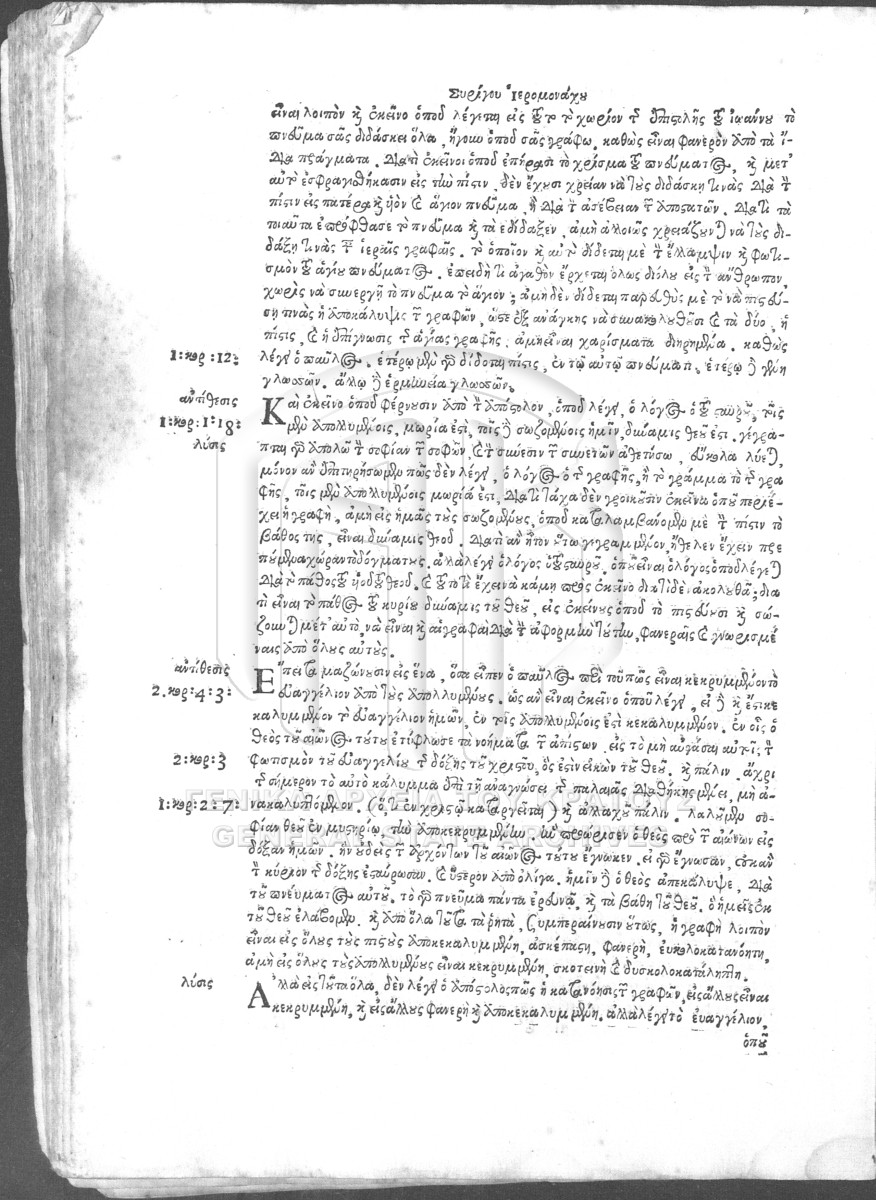 Συρίγου Ἱερομονάχου
εἶναι λοιπὸν καὶ ἐκεῖνο ὁποῦ λέγεται εἰς τοῦτο τὸ χωρίον τῆς ἐπιστολῆς τοῦ ἰωάννου τὸ
πνεῦμα σᾶς διδάσκει ὅλα, ἤγουν ὁποῦ σᾶς γράφω. καθὼς εἶναι φανερὸν ἀπὸ τὰ ἴ-
δια πράγματα. διατὶ ἐκεῖνοι ὁποῦ ἐπήρασι τὸ χρίσμα τοῦ πνεύματος, καὶ μετ'
αὐτὸ ἐσφραγίσθηκασιν εἰς τὴν πίστιν, δὲν ἔχουσι χρείαν νὰ τοὺς διδάσκῃ τινὰς διὰ τὴν
πίστιν εἰς πατέρα καὶ υἱὸν καὶ ἅγιον πνεῦμα, ἢ διὰ τὴν ἀσέβειαν τῶν ἀποστατῶν. διατὶ τὰ
τοιαῦτα ἐπρόφθασε τὸ πνεῦμα καὶ τὰ ἐδίδαξεν, ἀμὴ ἀλλοιῶς χρειάζουνται νὰ τοὺς δι-
δάξῃ τινὰς ταῖς ἱεραῖς γραφαῖς. τὸ ὁποῖον καὶ αὐτὸ δίδεται μὲ τὴν ἔλλαμψιν καὶ φωτι-
σμὸν τοῦ ἁγίου πνεύματος. ἐπειδὴ τὶ ἀγαθὸν ἔρχεται ὅλως διόλου εἰς τὸν ἄνθρωπον
χωρὶς νὰ συνεργῇ τὸ πνεῦμα τὸ ἅγιον; ἀμὴ δὲν δίδεται παρευθὺς μὲ τὸ νὰ πιστεύ-
σῃ τινὰς ἡ ἀποκάλυψις τῶν γραφῶν, ὥστε ἐξ ἀνάγκης νὰ συνακολουθοῦσι καὶ τὰ δύο, ἡ
πίστις, καὶ ἡ ἐπίγνωσις τῆς ἁγίας γραφῆς. ἀμὴ εἶναι χαρίσματα διῃρημένα. καθὼς
1: κορ: 12: λέγει ὁ παῦλος, ἑτέρῳ μὲν γὰρ δίδοται πίστις, ἐν τῷ αὐτῷ πνεύματι, ἑτέρῳ δὲ γένη
γλωσσῶν. ἄλλῳ δὲ ἑρμηνεία γλωσσῶν.
ἀντίθεσις Καὶ ἐκεῖνο ὁποῦ φέρνουσιν ἀπὸ τὸν ἀπόστολον, ὁποῦ λέγει, ὁ λόγος ὁ τοῦ σταυροῦ, τοῖς
1: κορ: 1: 18: μὲν ἀπολλυμένοις, μωρία ἐστὶ, τοῖς δὲ σωζομένοις ἡμῖν, δύναμις θεοῦ ἐστι. γέγρα-
λύσις πται γὰρ ἀπολῶ τὴν σοφίαν τῶν σοφῶν, καὶ τὴν σύνεσιν τῶν συνετῶν ἀθετήσω, εὔκολα λύεται,
μόνον ἂν ἐπιτηρήσωμεν πῶς δὲν λέγει, ὁ λόγος ὁ τῆς γραφῆς, ἢ τὸ γράμμα τὸ τῆς γρα-
φῆς, τοῖς μὲν ἀπολλυμένοις μωρία ἐστι, διατὶ τάχα δὲν γροικοῦσιν ἐκεῖνα ὁποῦ περιέ-
χει ἡ γραφὴ, ἀμὴ εἰς ἡμᾶς τοὺς σωζομένους, ὁποῦ καταλαμβάνομεν μὲ τὴν πίστιν τὸ
βάθος της, εἶναι δύναμις θεοῦ. διατὶ ἂν ἦτον οὕτω γεγραμμένον, ἤθελεν ἔχειν πρε
πύμενα χώραν τὸ δόγματους. ἀλλὰ λέγει ὁ λόγος ὁ τοῦ σταυροῦ, ὁποῦ εἶναι ὁ λόγος ὁποῦ λέγεται
διὰ τὸ πάθος τοῦ υἱοῦ τοῦ θεοῦ. καὶ τοῦτο τὶ ἔχει νὰ κάμῃ πρὸς ἐκεῖνο διατὶ δὲν ἀκολουθᾷ; δια
τὶ εἶναι τὸ πάθος τοῦ κυρίου δύναμις τοῦ θεοῦ, εἰς ἐκείνους ὁποῦ τὸ πιστεύουσι καὶ σώ-
ζουνται μετ' αὐτὸ, νὰ εἶναι καὶ αἱ γραφαὶ διὰ τὴν ἀφορμὴν τούτην, φανεραῖς καὶ γνωρισμέ
ναις ἀπὸ ὅλους αὐτούς.
ἀντίθεσις Ἔπειτα μαζώνουσιν εἰς ἕνα, ὅσα εἶπεν ὁ παῦλος περὶ τοῦ πῶς εἶναι κεκρυμμένον τὸ
2. κορ: 4: 3: εὐαγγέλιον ἀπὸ τοὺς ἀπολλυμένους. ὡς ἂν εἶναι ἐκεῖνο ὁποῦ λέγει, εἰ δὲ καὶ ἔστι κε
καλυμμένον τὸ εὐαγγέλιον ἡμῶν, ἐν τοῖς ἀπολλυμένοις ἐστὶ κεκαλυμμένον. ἐν οἷς ὁ
θεὸς τοῦ αἰῶνος τούτου ἐτύφλωσε τὰ νοήματα τῶν ἀπίστων. εἰς τὸ μὴ αὐγάσαι αὐτοῖς τὸν
2: κορ: 3 φωτισμὸν τοῦ εὐαγγελίου τῆς δόξης τοῦ χριστοῦ, ὅς ἐστιν εἰκὼν τοῦ θεοῦ. καὶ πάλιν. ἄχρι
τῆς σήμερον τὸ αὐτὸ κάλυμμα ἐπὶ τῇ ἀναγνώσει τῆς παλαιᾶς διαθήκης μένει, μὴ ἀ-
1: κορ: 2: 7: νακαλυπτόμενον. (ὅ,τι ἐν χριστῷ καταργεῖται) καὶ ἀλλαχοῦ πάλιν. λαλοῦμεν σο-
φίαν θεοῦ ἐν μυστηρίῳ, τὴν ἀποκεκρυμμένην. ἣν προώρισεν ὁ θεὸς πρὸ τῶν αἰώνων εἰς
δόξαν ἡμῶν. ἣν οὐδεὶς τῶν ἀρχόντων τοῦ αἰῶνος τούτου ἔγνωκεν. εἰ γὰρ ἔγνωσαν, οὐκ ἂν
τὸν κύριον τῆς δόξης ἐσταύρωσαν. καὶ ὕστερον ἀπὸ ὀλίγα. ἡμῖν δὲ ὁ θεὸς ἀπεκάλυψε, διὰ
τοῦ πνεύματος αὐτοῦ. τὸ γὰρ πνεῦμα πάντα ἐρευνᾷ. καὶ τὰ βάθη τοῦ θεοῦ. ὃ ἡμεῖς ἐκ
τοῦ θεοῦ ἐλάβομεν. καὶ ἀπὸ ὅλα τοῦτα τὰ ῥητὰ, συμπεραίνουσιν οὕτως, ἡ γραφὴ λοιπὸν
εἶναι εἰς ὅλους τοὺς πιστοὺς ἀποκεκαλυμμένη, ἀσκέπαστη, φανερὴ, εὐκολοκατανόητη,
ἀμὴ εἰς ὅλους τοὺς ἀπολλυμένους εἶναι κεκρυμμένη, σκοτεινὴ καὶ δυσκολοκατάληπτη.
λύσις Ἀλλὰ εἰς τοῦτα ὅλα, δὲν λέγει ὁ ἀπόστολος πῶς ἡ κατανόησις τῶν γραφῶν, εἰς ἄλλους εἶναι
κεκρυμμένη, καὶ εἰς ἄλλους φανερὴ καὶ ἀποκεκαλυμμένη. ἀλλὰ λέγει τὸ εὐαγγέλιον,
ὁποῦ
ΓΕΝΙΚΑ ΑΡΧΕΙΑ ΤΟΥ ΚΡΑΤΟΥΣ
GENERAL STATE ARCHIVES